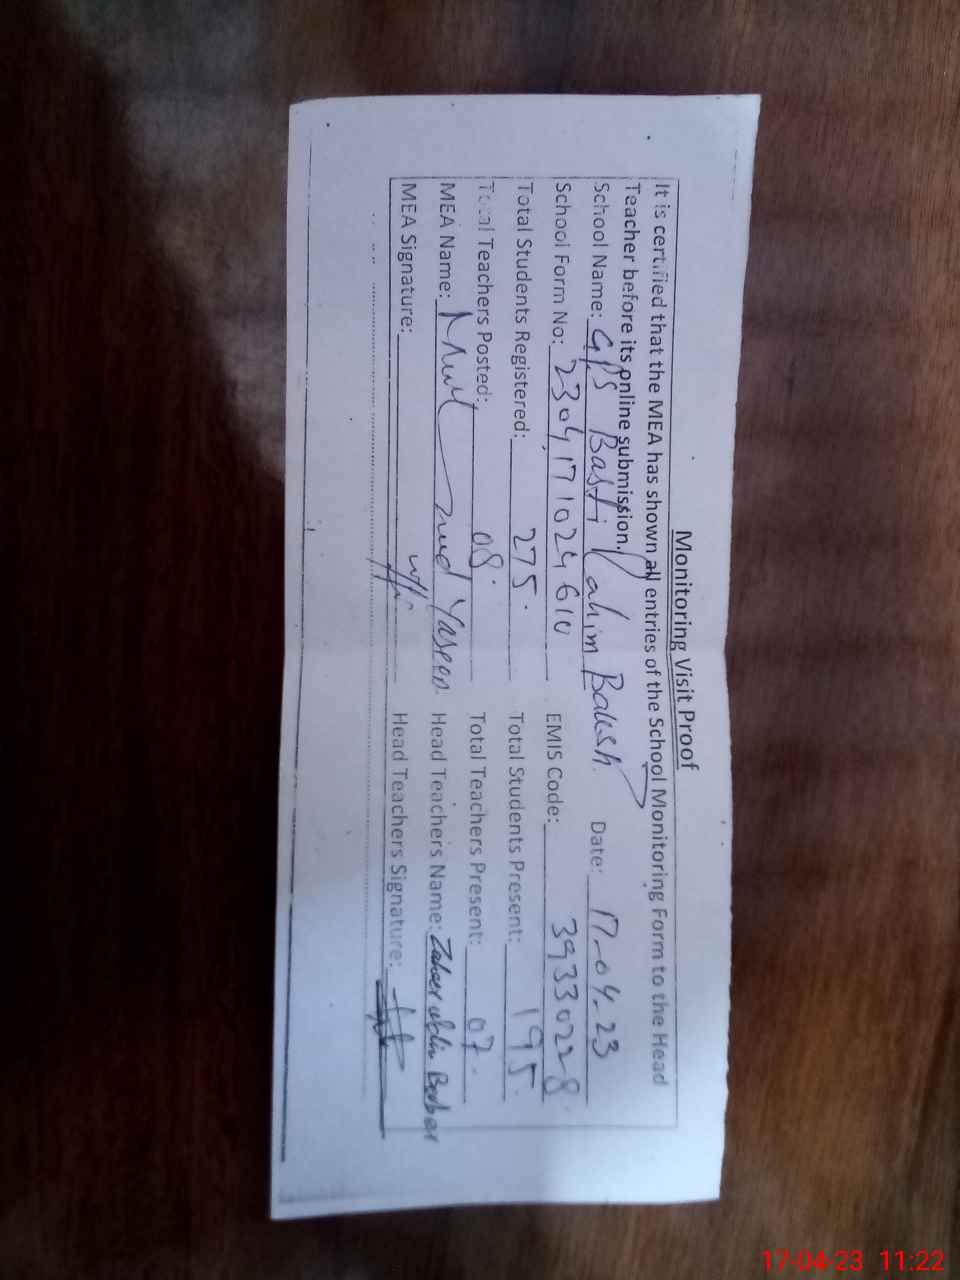 Monitoring Visit Proof
It is certified that the MEA has shown all entries of the School Monitoring Form to the Head
Teacher before its online submission.
School Name: GPS Basti Rahim Baksh Date: 17-04-23
School Form No: 2304171024610 EMIS Code: 39330228
Total Students Registered: 275 Total Students Present: 195
Total Teachers Posted: 08 Total Teachers Present: 07
MEA Name: Yaseen Head Teachers Name: Zaheer uddin Babar
MEA Signature: Head Teachers Signature:
17-04-23 11:22